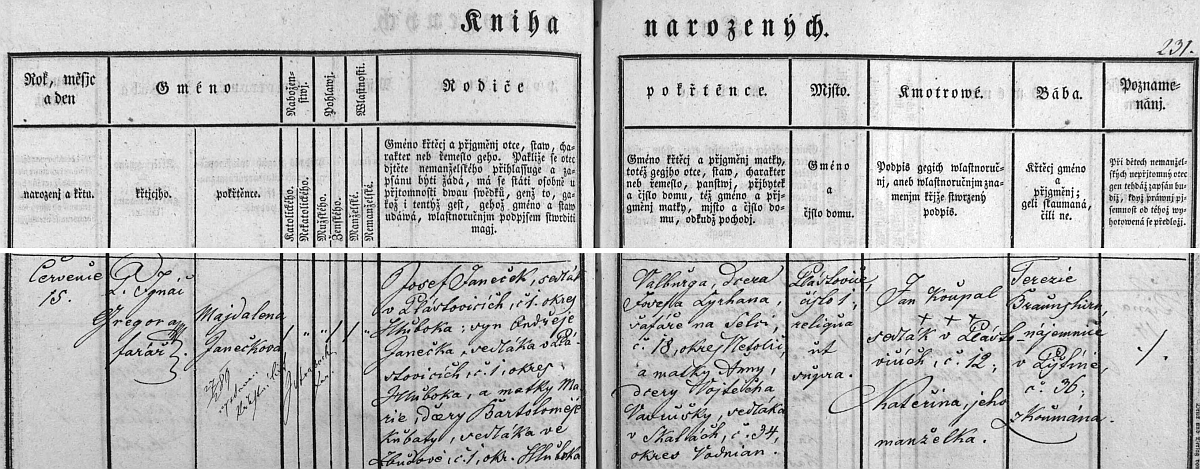 Kniha narozených.
231.
Rok, měsíc a den
Gméno
Nábožen-stwj.
Pohlawj.
Wlastnosti.
Rodiče
pokřtěnce.
Mjsto.
Kmotrowé.
Bába.
Pozname-nánj.
narozenj a křtu.
křtjcjho.
pokřtěnce.
Katolického.
Nekatolického.
Mužského.
Ženského.
Manželské.
Nemanželské.
Gméno křtěcj a přjgměnj otce, staw, cha-
rakter neb řemeslo geho. Pakliže se otec
djtěte nemanželského přihlassuge a za-
psánu býti žádá, má se státi osobně u
přjtomnosti dwau swědků, genž to, ga-
kož i tentýž gest, gehož gméno a staw
udáwá, wlastnoručnjm podpisem stwrditi
magj.
Gméno křtěcj a přjgměnj matky,
totéž gegjho otce, staw, charakter
neb řemeslo, panstwj, přjbytek
a čjslo domu, též gméno a přj-
gměnj matky, mjsto a čjslo do-
mu, odkudž pocházj.
Gméno
a
čjslo domu.
Podpis gegich wlastnoruč-
nj, aneb wlastnoručnjm zna-
menjm křjže stwrzený
podpis.
Křtěcj gméno
a
přjgměnj;
geli skaumaná,
čili ne.
Při dětech nemanžel-
ských nepřjtomný otec
gen tehdáž zapsán bu-
diž, když práwnj pj-
semnost od téhož wy-
hotowená se předložj.
Červenec
15.
P. Ignác
Gregora
farář
Majdalena
Janečkova
Josef Janeček, sedlák
v Plástovicích, č. 1. okres
Hluboka; syn Ondřeje
Janečka, sedláka v Plá-
stovicích, č. 1, okres
Hluboka, a matky Ma-
rie, dcery Bartoloměje
Kubaty, sedláka ve
Zbudově, č. 1, okr. Hluboká
Valburga, dcera
Josefa
šafáře na
č. 18, okres Netolic,
a matky Anny,
dcery Vojtěcha
sedláka
v Skalách, č. 34,
okres Vodnian.
Plástovice,
číslo 1,
religua
ut
supra.
Jan Koupal
+ + +
sedlák v Plásto-
vicích, č. 12,
Kateřina, jeho
manželka.
Terezie
nájemnice
v Pištíně,
č. 36,
zkoumána.
./.